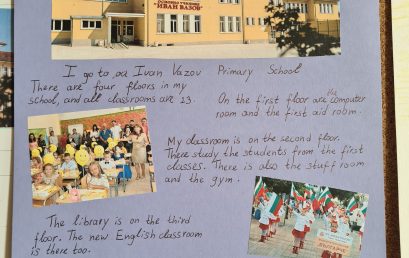 ОСНОВНО УЧИЛИЩЕ
"ИВАН ВАЗОВ"
I go to our Ivan Vazov Primary School
There are four floors in my
school, and all classrooms are 13.
On the first floor are the computer
room and the first aid room.
My classroom is on the second floor.
There study the students from the first
classes. There is also the staff room
and the gym.
The library is on the third
floor. The new English classroom
is there too.